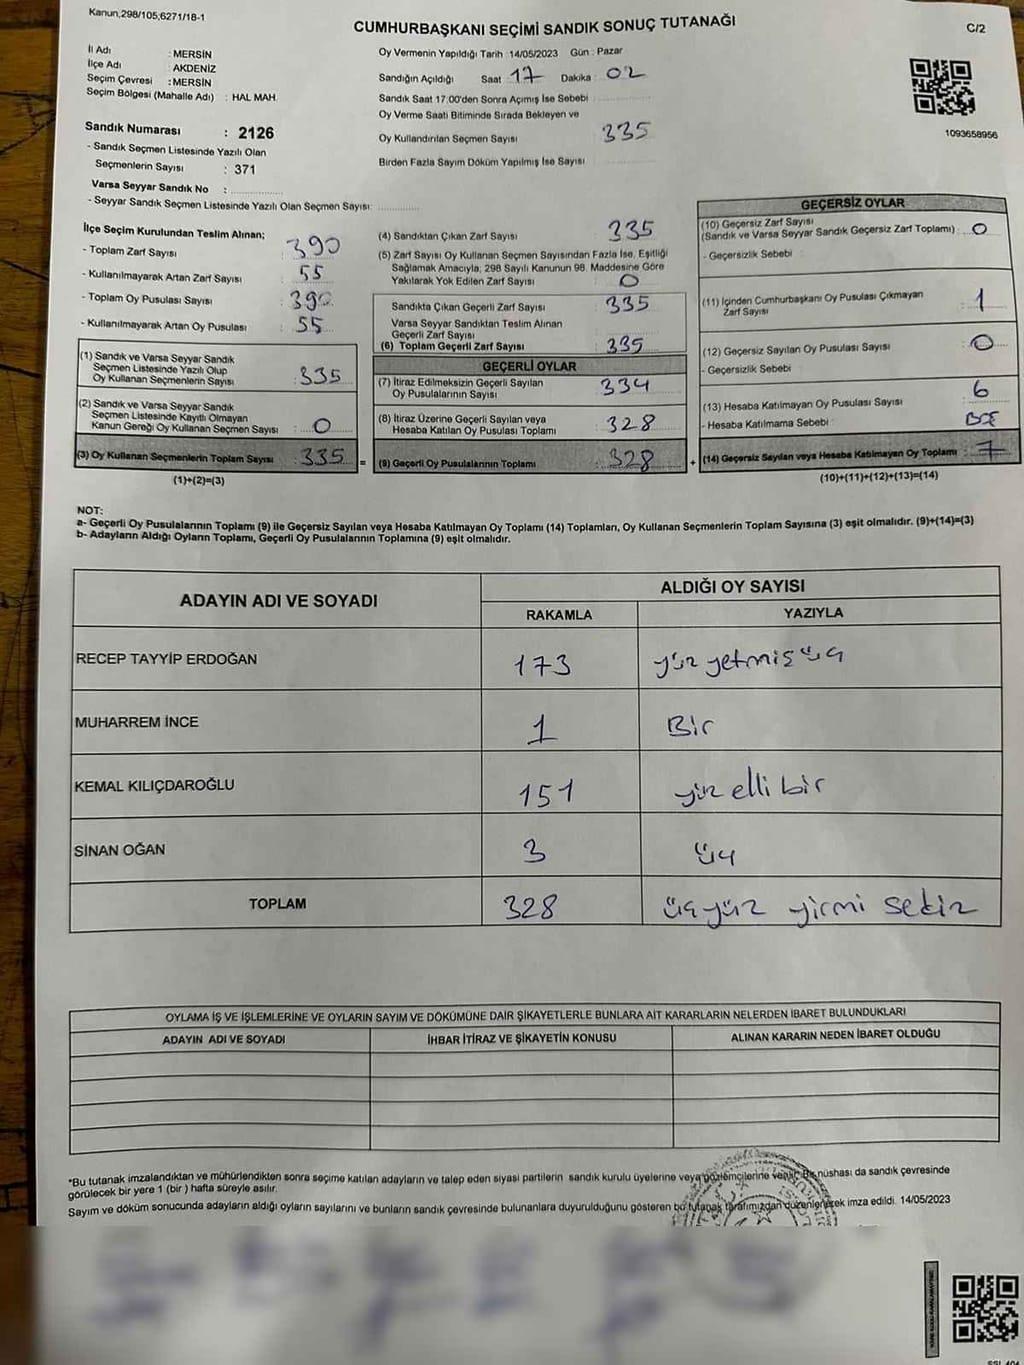 Kanun,298/105,6271/18-1
CUMHURBAŞKANI SEÇİMİ SANDIK SONUÇ TUTANAĞI
C/2
İl Adı : MERSİN
İlçe Adı : AKDENİZ
Seçim Çevresi : MERSİN
Seçim Bölgesi (Mahalle Adı) : HAL MAH.
Sandık Numarası : 2126
- Sandık Seçmen Listesinde Yazılı Olan
Seçmenlerin Sayısı : 371
Varsa Seyyar Sandık No :
- Seyyar Sandık Seçmen Listesinde Yazılı Olan Seçmen Sayısı:
Oy Vermenin Yapıldığı Tarih : 14/05/2023 Gün : Pazar
Sandığın Açıldığı Saat : 17 Dakika : 02
Sandık Saat 17:00'den Sonra Açımış İse Sebebi
Oy Verme Saati Bitiminde Sırada Bekleyen ve
Oy Kullandırılan Seçmen Sayısı 335
Birden Fazla Sayım Döküm Yapılmış İse Sayısı
1093658956
İlçe Seçim Kurulundan Teslim Alınan;
- Toplam Zarf Sayısı : 390
- Kullanılmayarak Artan Zarf Sayısı : 55
- Toplam Oy Pusulası Sayısı : 390
- Kullanılmayarak Artan Oy Pusulası : 55
(1) Sandık ve Varsa Seyyar Sandık
Seçmen Listesinde Yazılı Olup
Oy Kullanan Seçmenlerin Sayısı : 335
(2) Sandık ve Varsa Seyyar Sandık
Seçmen Listesinde Kayıtlı Olmayan
Kanun Gereği Oy Kullanan Seçmen Sayısı : 0
(3) Oy Kullanan Seçmenlerin Toplam Sayısı : 335 =
(1)+(2)=(3)
(4) Sandıktan Çıkan Zarf Sayısı 335
(5) Zarf Sayısı Oy Kullanan Seçmen Sayısından Fazla İse, Eşitliği
Sağlamak Amacıyla, 298 Sayılı Kanunun 98. Maddesine Göre
Yakılarak Yok Edilen Zarf Sayısı : 0
Sandıkta Çıkan Geçerli Zarf Sayısı : 335
Varsa Seyyar Sandıktan Teslim Alınan
Geçerli Zarf Sayısı
(6) Toplam Geçerli Zarf Sayısı : 335
GEÇERLİ OYLAR
(7) İtiraz Edilmeksizin Geçerli Sayılan
Oy Pusulalarının Sayısı : 334
(8) İtiraz Üzerine Geçerli Sayılan veya
Hesaba Katılan Oy Pusulası Toplamı : 328
(9) Geçerli Oy Pusulalarının Toplamı : 328 +
GEÇERSİZ OYLAR
(10) Geçersiz Zarf Sayısı
(Sandık ve Varsa Seyyar Sandık Geçersiz Zarf Toplamı) : 0
- Geçersizlik Sebebi
(11) İçinden Cumhurbaşkanı Oy Pusulası Çıkmayan
Zarf Sayısı : 1
(12) Geçersiz Sayılan Oy Pusulası Sayısı : 0
- Geçersizlik Sebebi
(13) Hesaba Katılmayan Oy Pusulası Sayısı : 6
- Hesaba Katılmama Sebebi :
(14) Geçersiz Sayılan veya Hesaba Katılmayan Oy Toplamı : 7
(10)+(11)+(12)+(13)=(14)
NOT:
a- Geçerli Oy Pusulalarının Toplamı (9) ile Geçersiz Sayılan veya Hesaba Katılmayan Oy Toplamı (14) Toplamları, Oy Kullanan Seçmenlerin Toplam Sayısına (3) eşit olmalıdır. (9)+(14)=(3)
b- Adayların Aldığı Oyların Toplamı, Geçerli Oy Pusulalarının Toplamına (9) eşit olmalıdır.
ADAYIN ADI VE SOYADI
ALDIĞI OY SAYISI
RAKAMLA YAZIYLA
RECEP TAYYİP ERDOĞAN 173 yüz yetmiş üç
MUHARREM İNCE 1 Bir
KEMAL KILIÇDAROĞLU 151 yüz elli bir
SİNAN OĞAN 3 üç
TOPLAM 328 üçyüz yirmi sekiz
OYLAMA İŞ VE İŞLEMLERİNE VE OYLARIN SAYIM VE DÖKÜMÜNE DAİR ŞİKAYETLERLE BUNLARA AİT KARARLARIN NELERDEN İBARET BULUNDUKLARI
ADAYIN ADI VE SOYADI İHBAR İTİRAZ VE ŞİKAYETİN KONUSU ALINAN KARARIN NEDEN İBARET OLDUĞU
*Bu tutanak imzalandıktan ve mühürlendikten sonra seçime katılan adayların ve talep eden siyasi partilerin sandık kurulu üyelerine veya gözlemcilerine verilir. Bir nüshası da sandık çevresinde
görülecek bir yere 1 (bir ) hafta süreyle asılır.
Sayım ve döküm sonucunda adayların aldığı oyların sayılarını ve bunların sandık çevresinde bulunanlara duyurulduğunu gösteren bu tutanak tarafımızdan düzenlenerek imza edildi. 14/05/2023